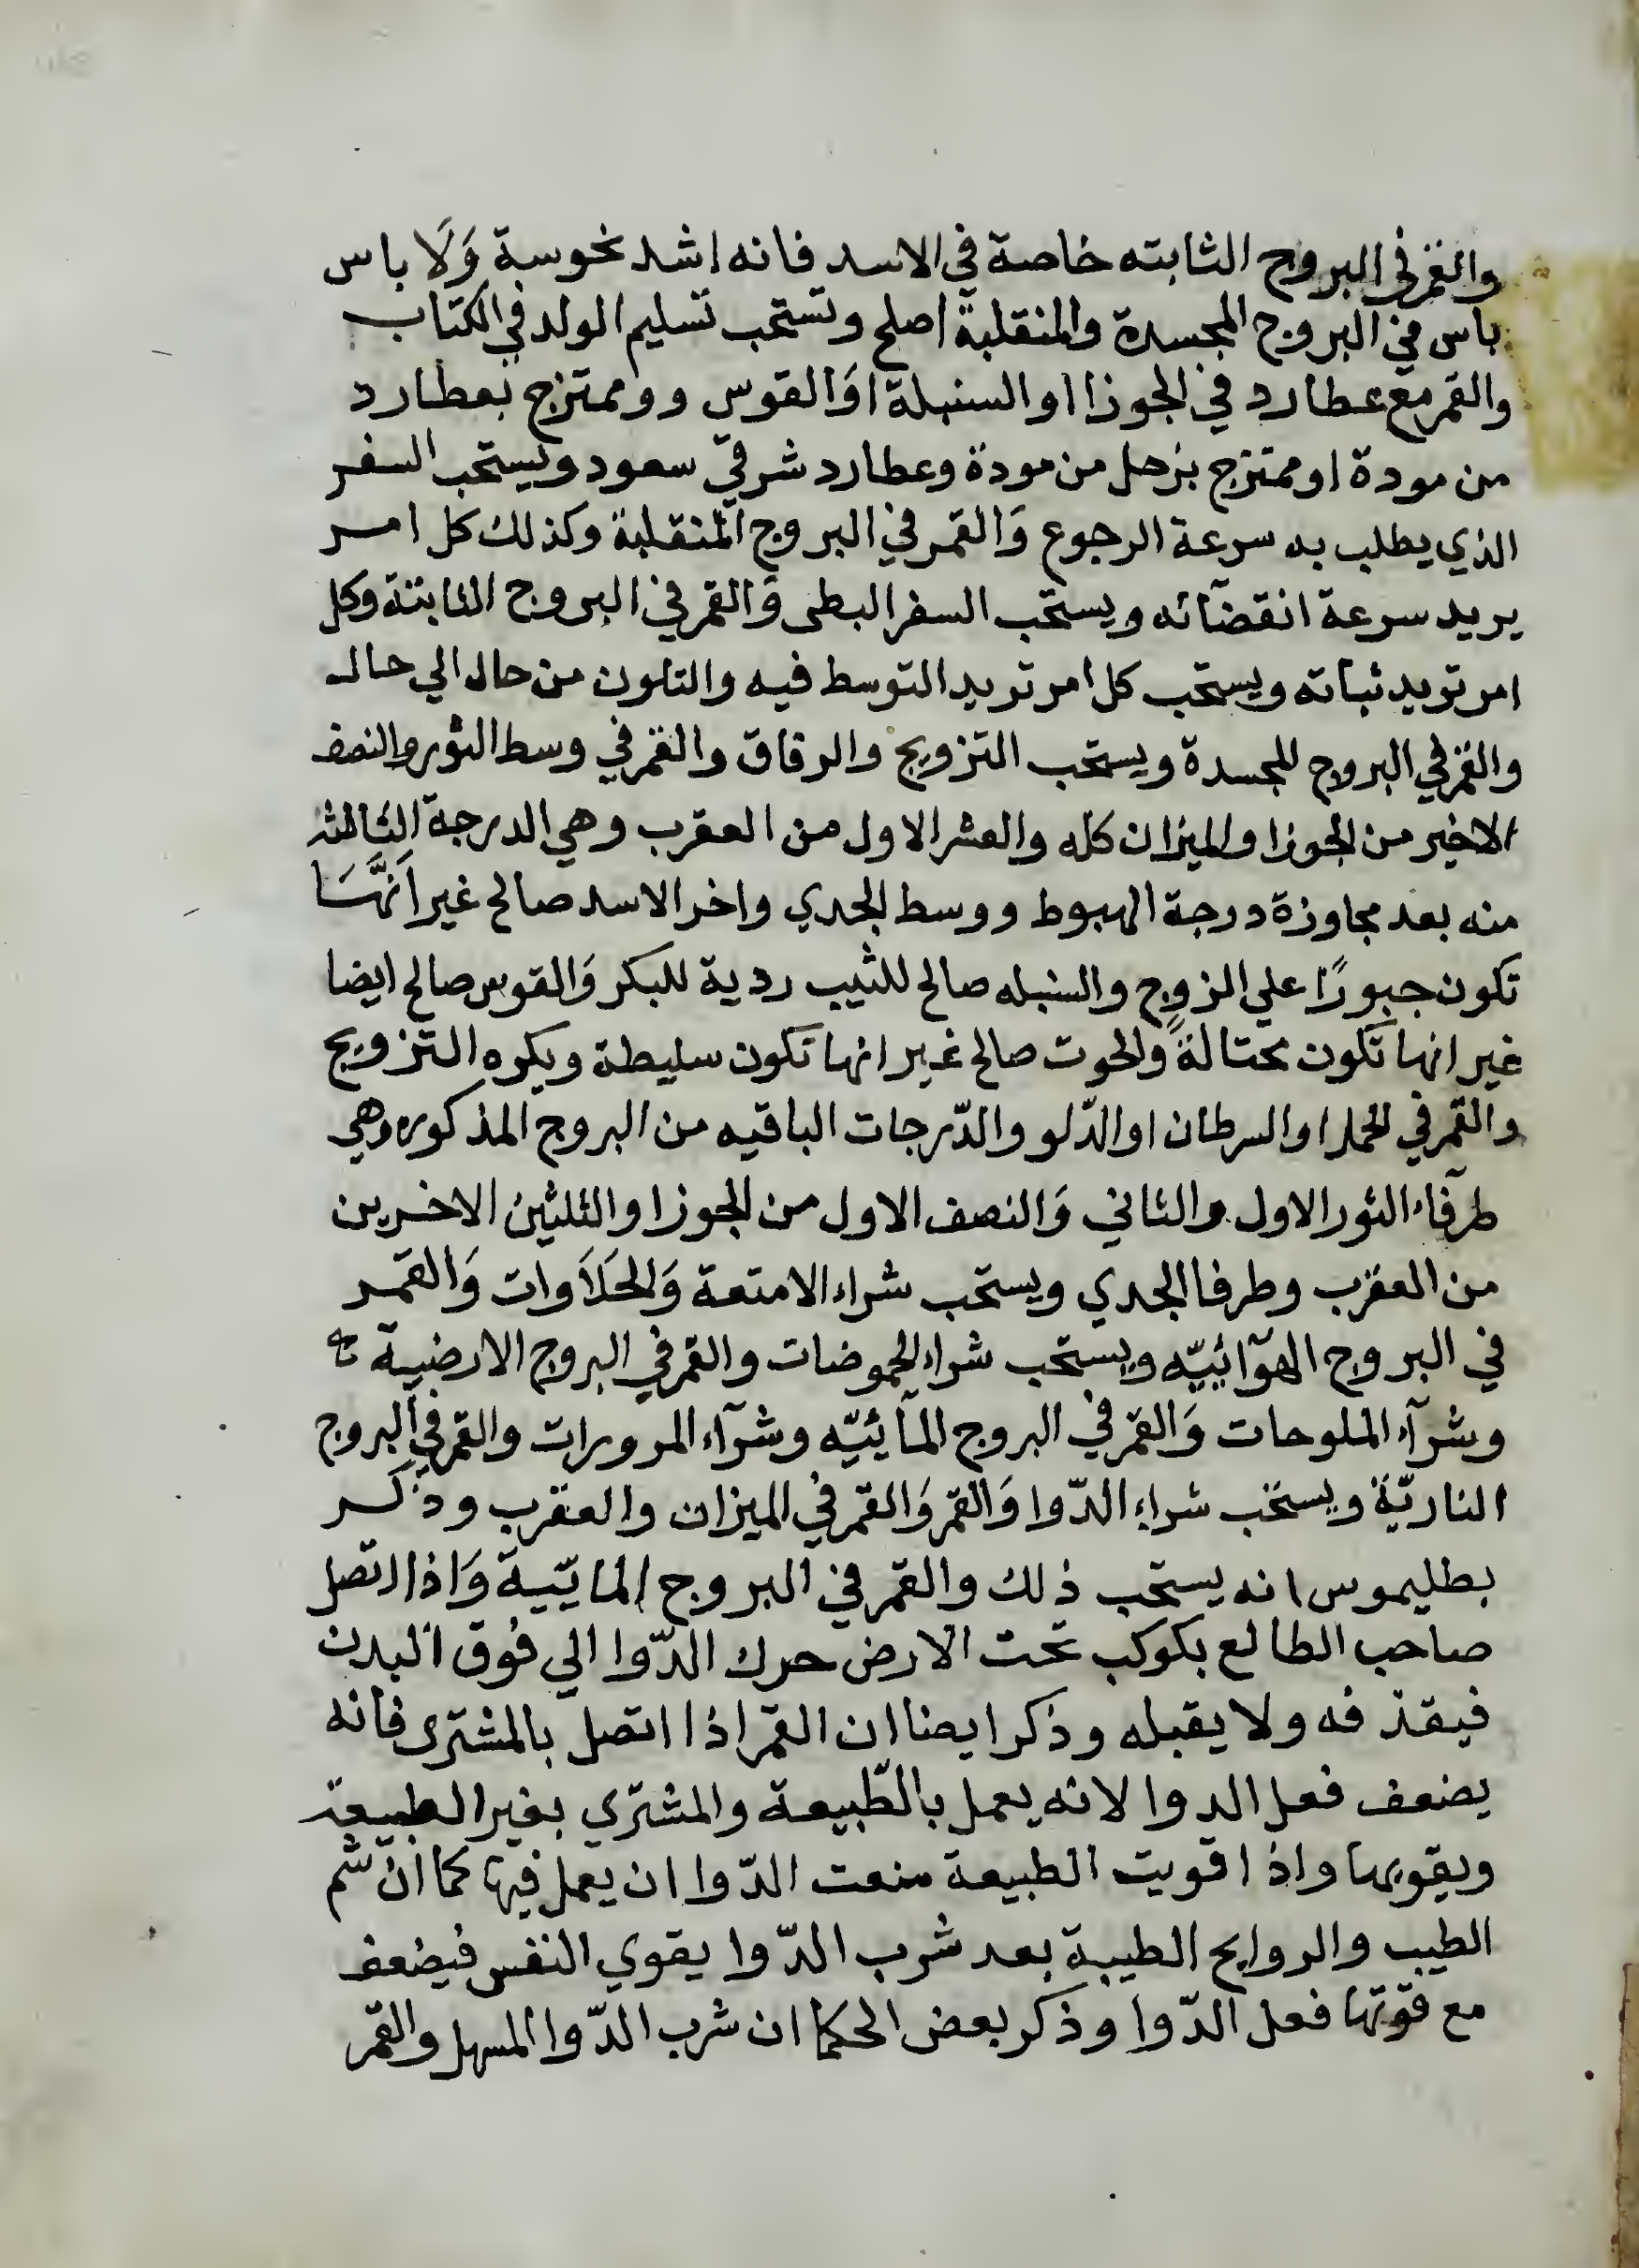 والقمر في البروج الثابته خاصة في الاسد فانه اشد نحوسة وَلَا باس
باس في البروج المجسدة والمنقلبة اصلح وتستحب تسليم الولد في الكتاب
والقمر مع عطارد في الجوزا او السنبلة اوَالقوس وو ممتزج بعطارد
من مودة او ممتزج بزحل من مودة وعطارد شرقي سعود ويستحب السفر
الذي يطلب به سرعة الرجوع وَالقمر في البروج المنقلبة وكذلك كل امر
يريد سرعة انقضآئه ويستحب السفر البطى وَالقمر في البروج الثابتة وكل
امر تريد ثباته ويستحب كل امر تريد التوسط فيه والتلون من حال الي حال
والقمر في البروج المجسدة ويستحب التزويج والرقاق والقمر في وسط الثور والنصف
الاخير من الجوزا والميزان كله والعشر الاول من العقرب وهي الدرجة الثالثة
منه بعد مجاوزة درجة الهبوط ووسط الجدي واخر الاسد صالح غير اَنَّهَا
تكون جبورًا علي الزوج والسنبله صالح للثيب ردية للبكر وَالقوس صالح ايضا
غير انها تكون محتالةً والحوت صالح غير انها تكون سليطة ويكره التزويج
والقمر في الحمل او السرطان او الدّلو والدّرجات الباقيه من البروج المذكوره وهي
طرفاء الثور الاول والثاني وَالنصف الاول من الجوزا والثلثين الاخرين
من العقرب وطرفا الجدي ويستحب شراء الامتعة وَالحَلَاوات وَالقمر
في البروج الهوآئيّه ويستحب شراء الحموضات والقمر في البروج الارضية
وشرآء الملوحات وَالقمر في البروج المآئيّه وشرآء المرورات والقمر في البروج
الناريّة ويستحب شراء الدّوا وَالقمر وَالقمر في الميزان والعقرب وذكر
بطليموس انه يستحب ذلك والقمر في البروج المائيّة وَاذا اتصل
صاحب الطالع بكوكب تحت الارض حرك الدّوا الي فوق البدن
فيقذفه ولا يقبله وذكر ايضا ان القمر اذا اتصل بالمشترى فانه
يضعف فعل الدوا لانه يعمل بالطّبيعة والمشتري بغير الطبيعة
ويقويها واذا قويت الطبيعة منعت الدّوا ان يعمل فيها كما ان شم
الطيب والروايح الطيبة بعد شرب الدّوا يقوي النفس فيضعف
مع قوّتها فعل الدّوا وذكر بعض الحكما ان شرب الدّوا المسهل والقمر